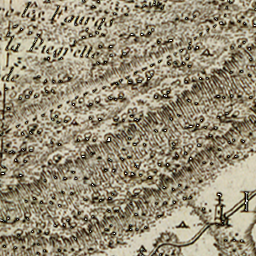 Les Fourgs
la Piegrette
de